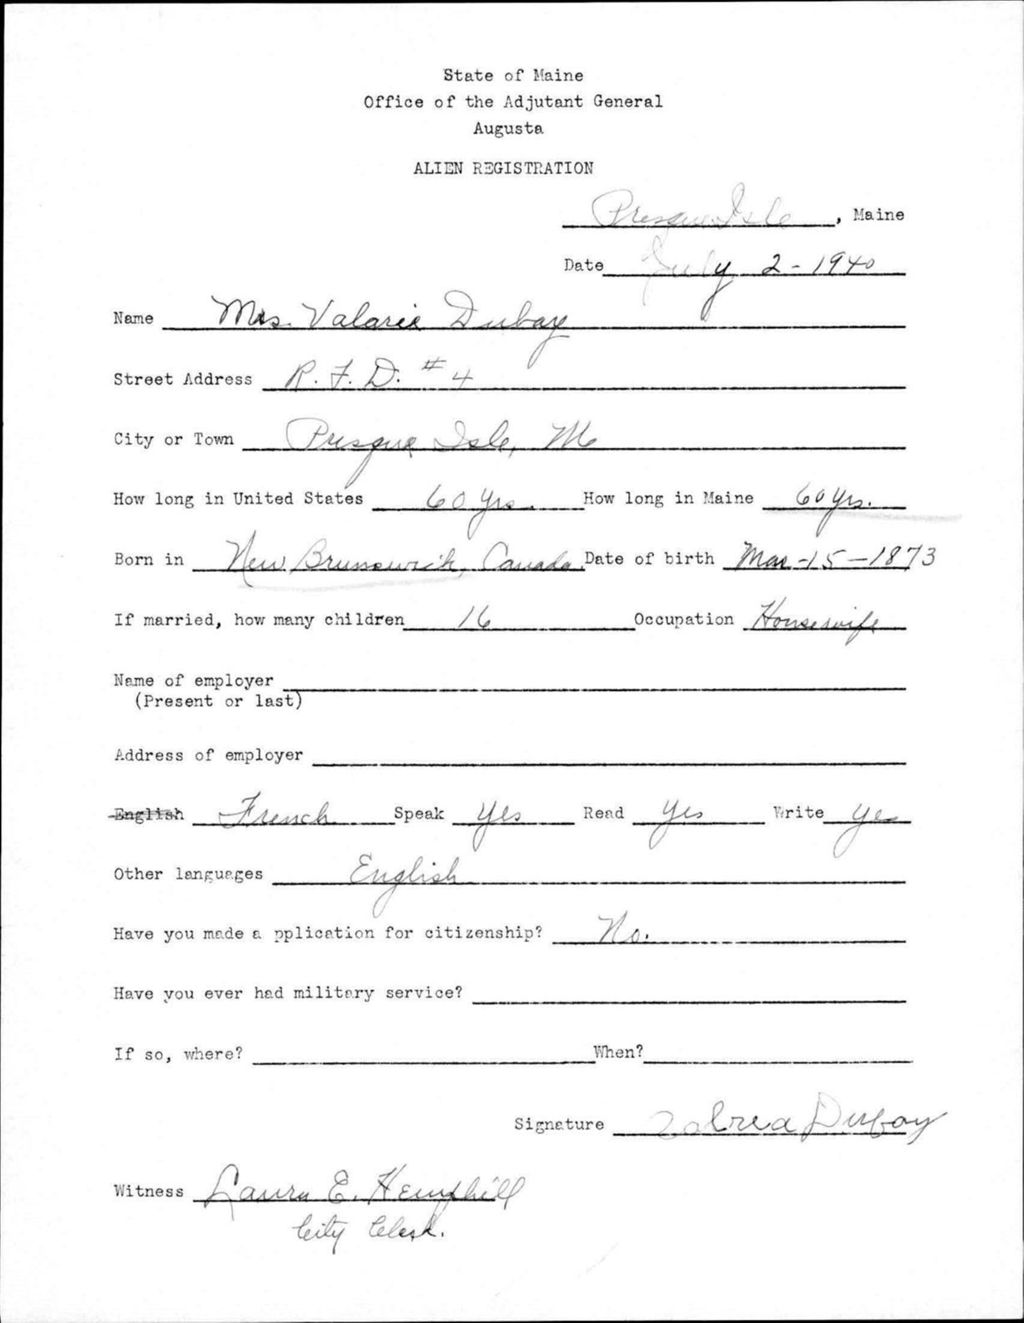 State of Maine
Office of the Adjutant General
Augusta
ALIEN REGISTRATION
Presque Isle, Maine
Date July 2-1940
Name Mrs. Valarie Dubay
Street Address R. F. D. # 4
City or Town Presque Isle, Me
How long in United States 60 yrs. How long in Maine 60 yrs.
Born in New Brunswick, Canada Date of birth Mar-15-1873
If married, how many children 16 Occupation Housewife
Name of employer
(Present or last)
Address of employer
English French Speak yes Read yes Write yes
Other languages English
Have you made a pplication for citizenship? No.
Have you ever had military service?
If so, where? When?
Signature Dubay
Witness Laura E. Hemphill
City Clerk.